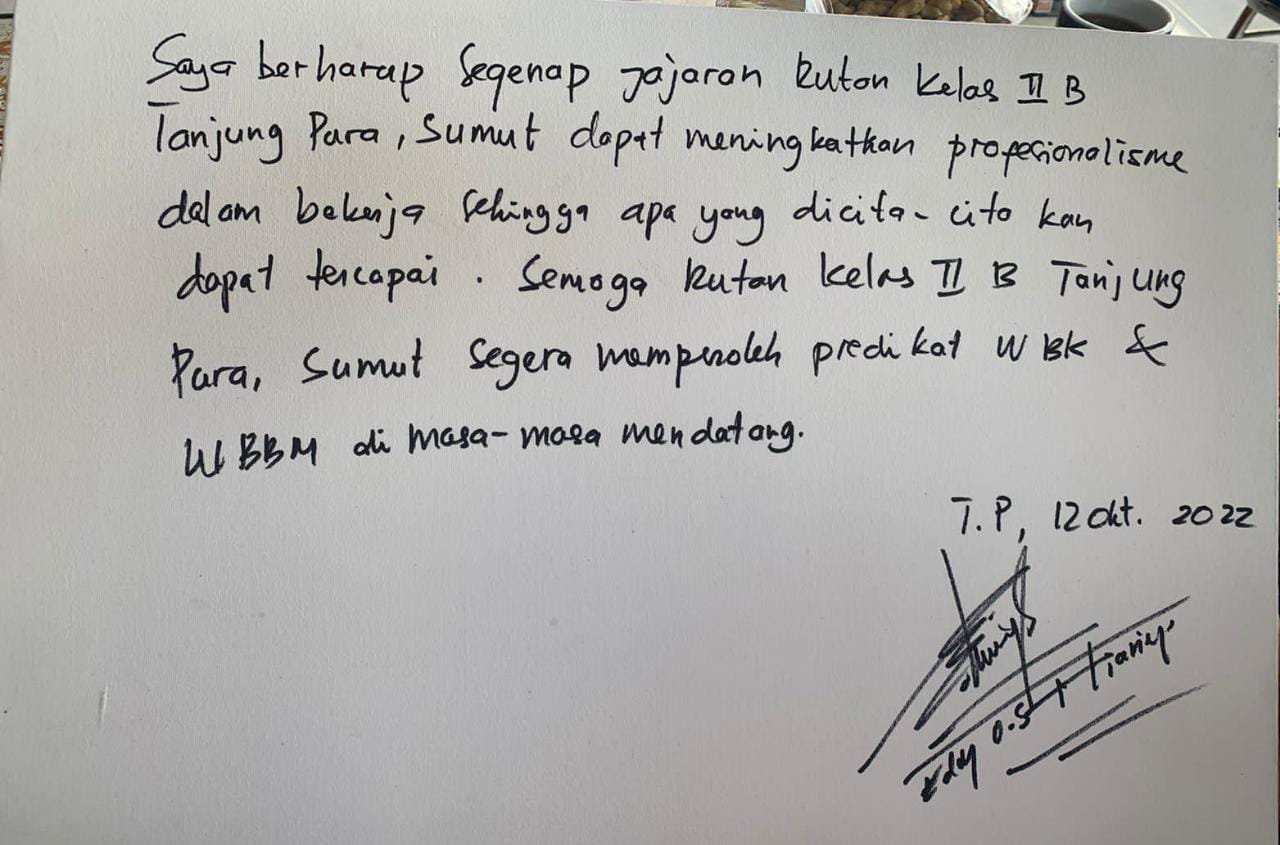 Saya berharap segenap jajaran Rutan Kelas II B
Tanjung Pura, Sumut dapat meningkatkan profesionalisme
dalam bekerja sehingga apa yang dicita-cita kan
dapat tercapai. Semoga Rutan Kelas II B Tanjung
Pura, Sumut segera memperoleh predikat WBK &
WBBM di masa-masa mendatang.
T.P, 12 Okt. 2022
Edy O.S